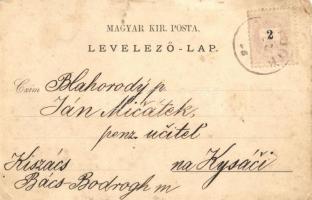 MAGYAR KIR. POSTA.
LEVELEZŐ-LAP.
2
Czim Blahorodý p.
Ján Mičátek,
penz. učitel
Kiszács na Kysáči
Bács-Bodrogh m